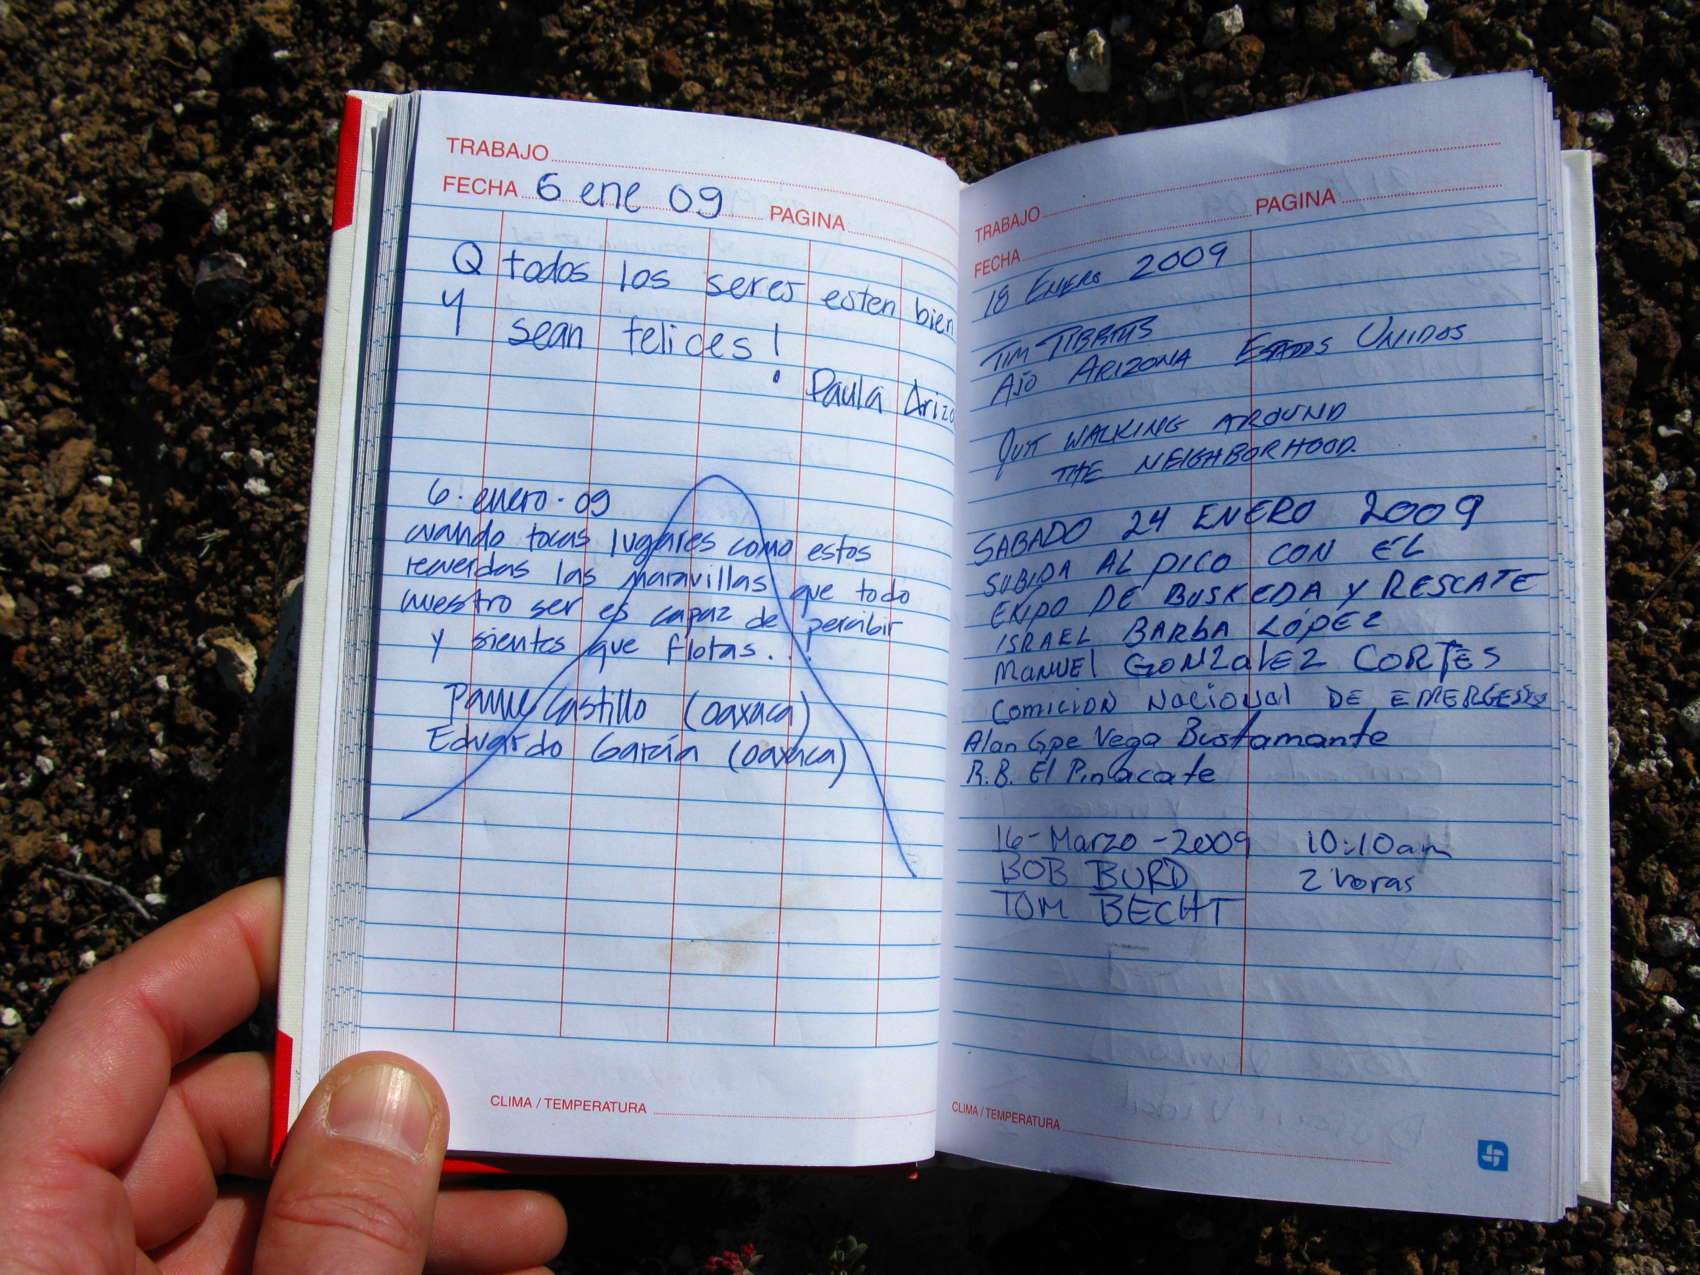 TRABAJO
FECHA 6 ene 09 PAGINA
Q todos los seres esten bien
y sean felices!
Paula Ariz
6. enero. 09
cuando tocas lugares como estos
recuerdas las maravillas que todo
nuestro ser es capaz de percibir
y sientes que flotas...
Castillo (oaxaca)
Eduardo García (oaxaca)
CLIMA / TEMPERATURA
TRABAJO
FECHA PAGINA
18 ENERO 2009
TIM TIBBITTS
AJO ARIZONA ESTADOS UNIDOS
JUST WALKING AROUND
THE NEIGHBORHOOD.
SABADO 24 ENERO 2009
SUBIDA AL PICO CON EL
DE BUSKEDA Y RESCATE
ISRAEL BARBA LÓPEZ
MANUEL GONZALEZ CORTES
COMICION NACIONAL DE
Alan Gpe Vega Bustamante
R.B. El Pinacate
16-Marzo-2009 10:10am
BOB BURD 2 horas
TOM BECHT
CLIMA / TEMPERATURA